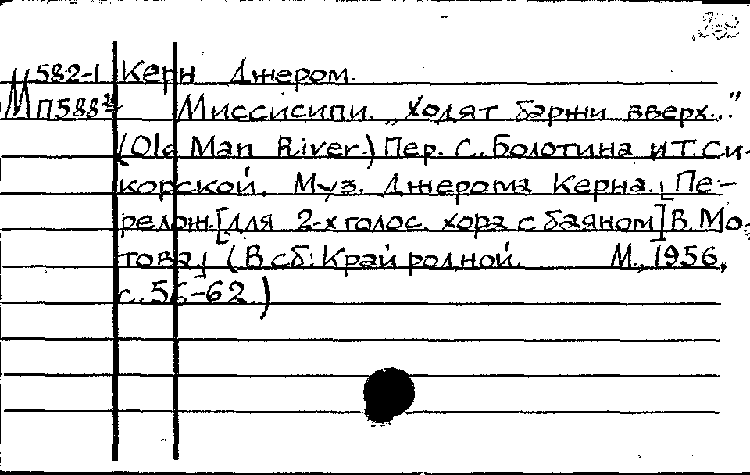 М 582-1 Керн Джером.
П588 Миссисипи. „Ходят баржи вверх..."
(Old Man River.) Пер. С. Болотина и Т. Си-
корской. Муз. Джерома Керна. [Пе-
релож. [для 2-х голос. хора с баяном] В. Мо-
това] (В сб: Край родной. М., 1956,
с. 56-62.)